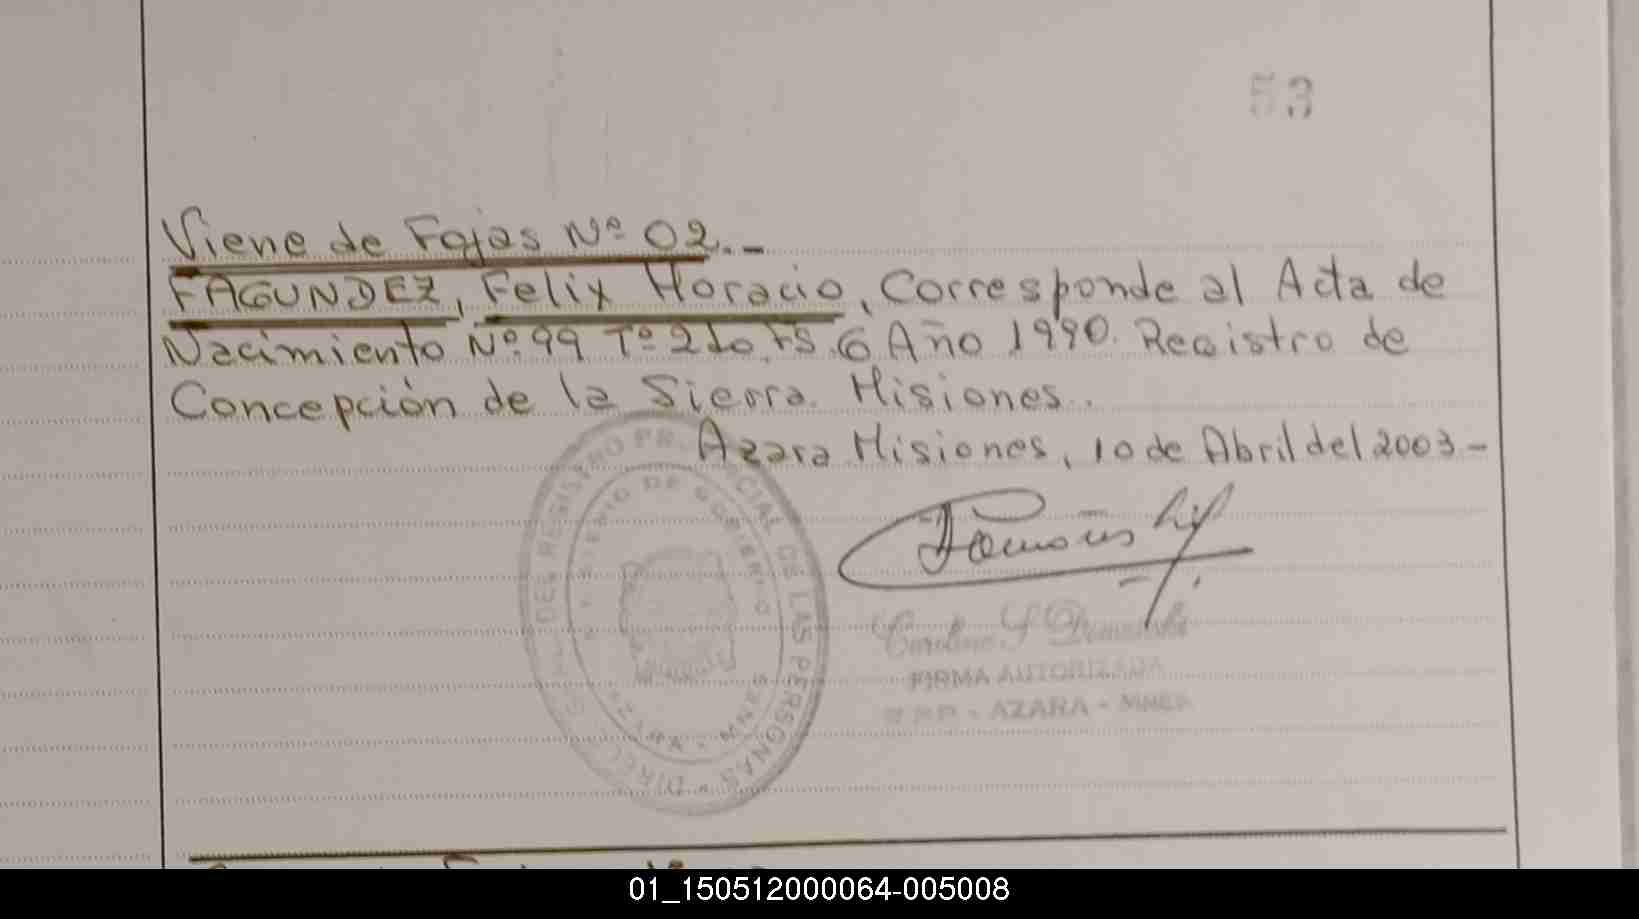 53
Viene de Fojas Nº 02.-
FAGUNDEZ, Felix Horacio, Corresponde al Acta de
Nacimiento Nº 99 Tº 2do, FS. 6 Año 1990. Registro de
Concepción de la Sierra. Misiones.
Azara Misiones, 10 de Abril del 2003-
FIRMA AUTORIZADA
AZARA - MNES
DEL REGISTRO PROVINCIAL DE LAS PERSONAS
MINISTERIO DE GOBIERNO
AZARA - MNES
01_150512000064-005008